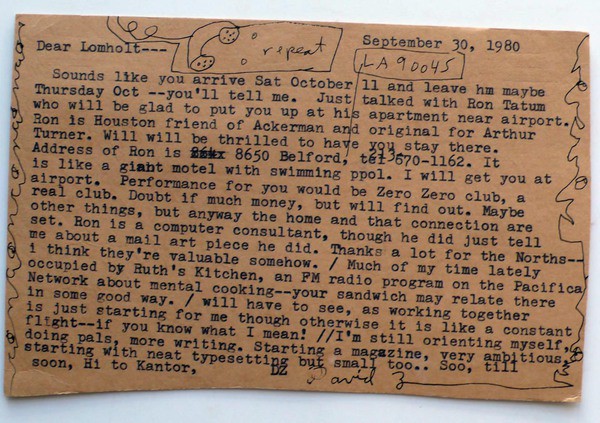 repeat
Dear Lomholt--- September 30, 1980
LA 90045
Sounds like you arrive Sat October 11 and leave hm maybe
Thursday Oct --you'll tell me. Just talked with Ron Tatum
who will be glad to put you up at his apartment near airport.
Ron is Houston friend of Ackerman and original for Arthur
Turner. Will will be thrilled to have you stay there.
Address of Ron is 8650 Belford, tel 670-1162. It
is like a giant motel with swimming ppol. I will get you at
airport. Performance for you would be Zero Zero club, a
real club. Doubt if much money, but will find out. Maybe
other things, but anyway the home and that connection are
set. Ron is a computer consultant, though he did just tell
me about a mail art piece he did. Thanks a lot for the Norths--
i think they're valuable somehow. / Much of my time lately
occupied by Ruth's Kitchen, an FM radio program on the Pacifica
Network about mental cooking--your sandwich may relate there
in some good way. / will have to see, as working together
is just starting for me though otherwise it is like a constant
flight--if you know what I mean! //I'm still orienting myself,
doing pals, more writing. Starting a magazine, very ambitious,
starting with neat typesetting but small too.. Soo, till
soon, Hi to Kantor, DZ
David Z